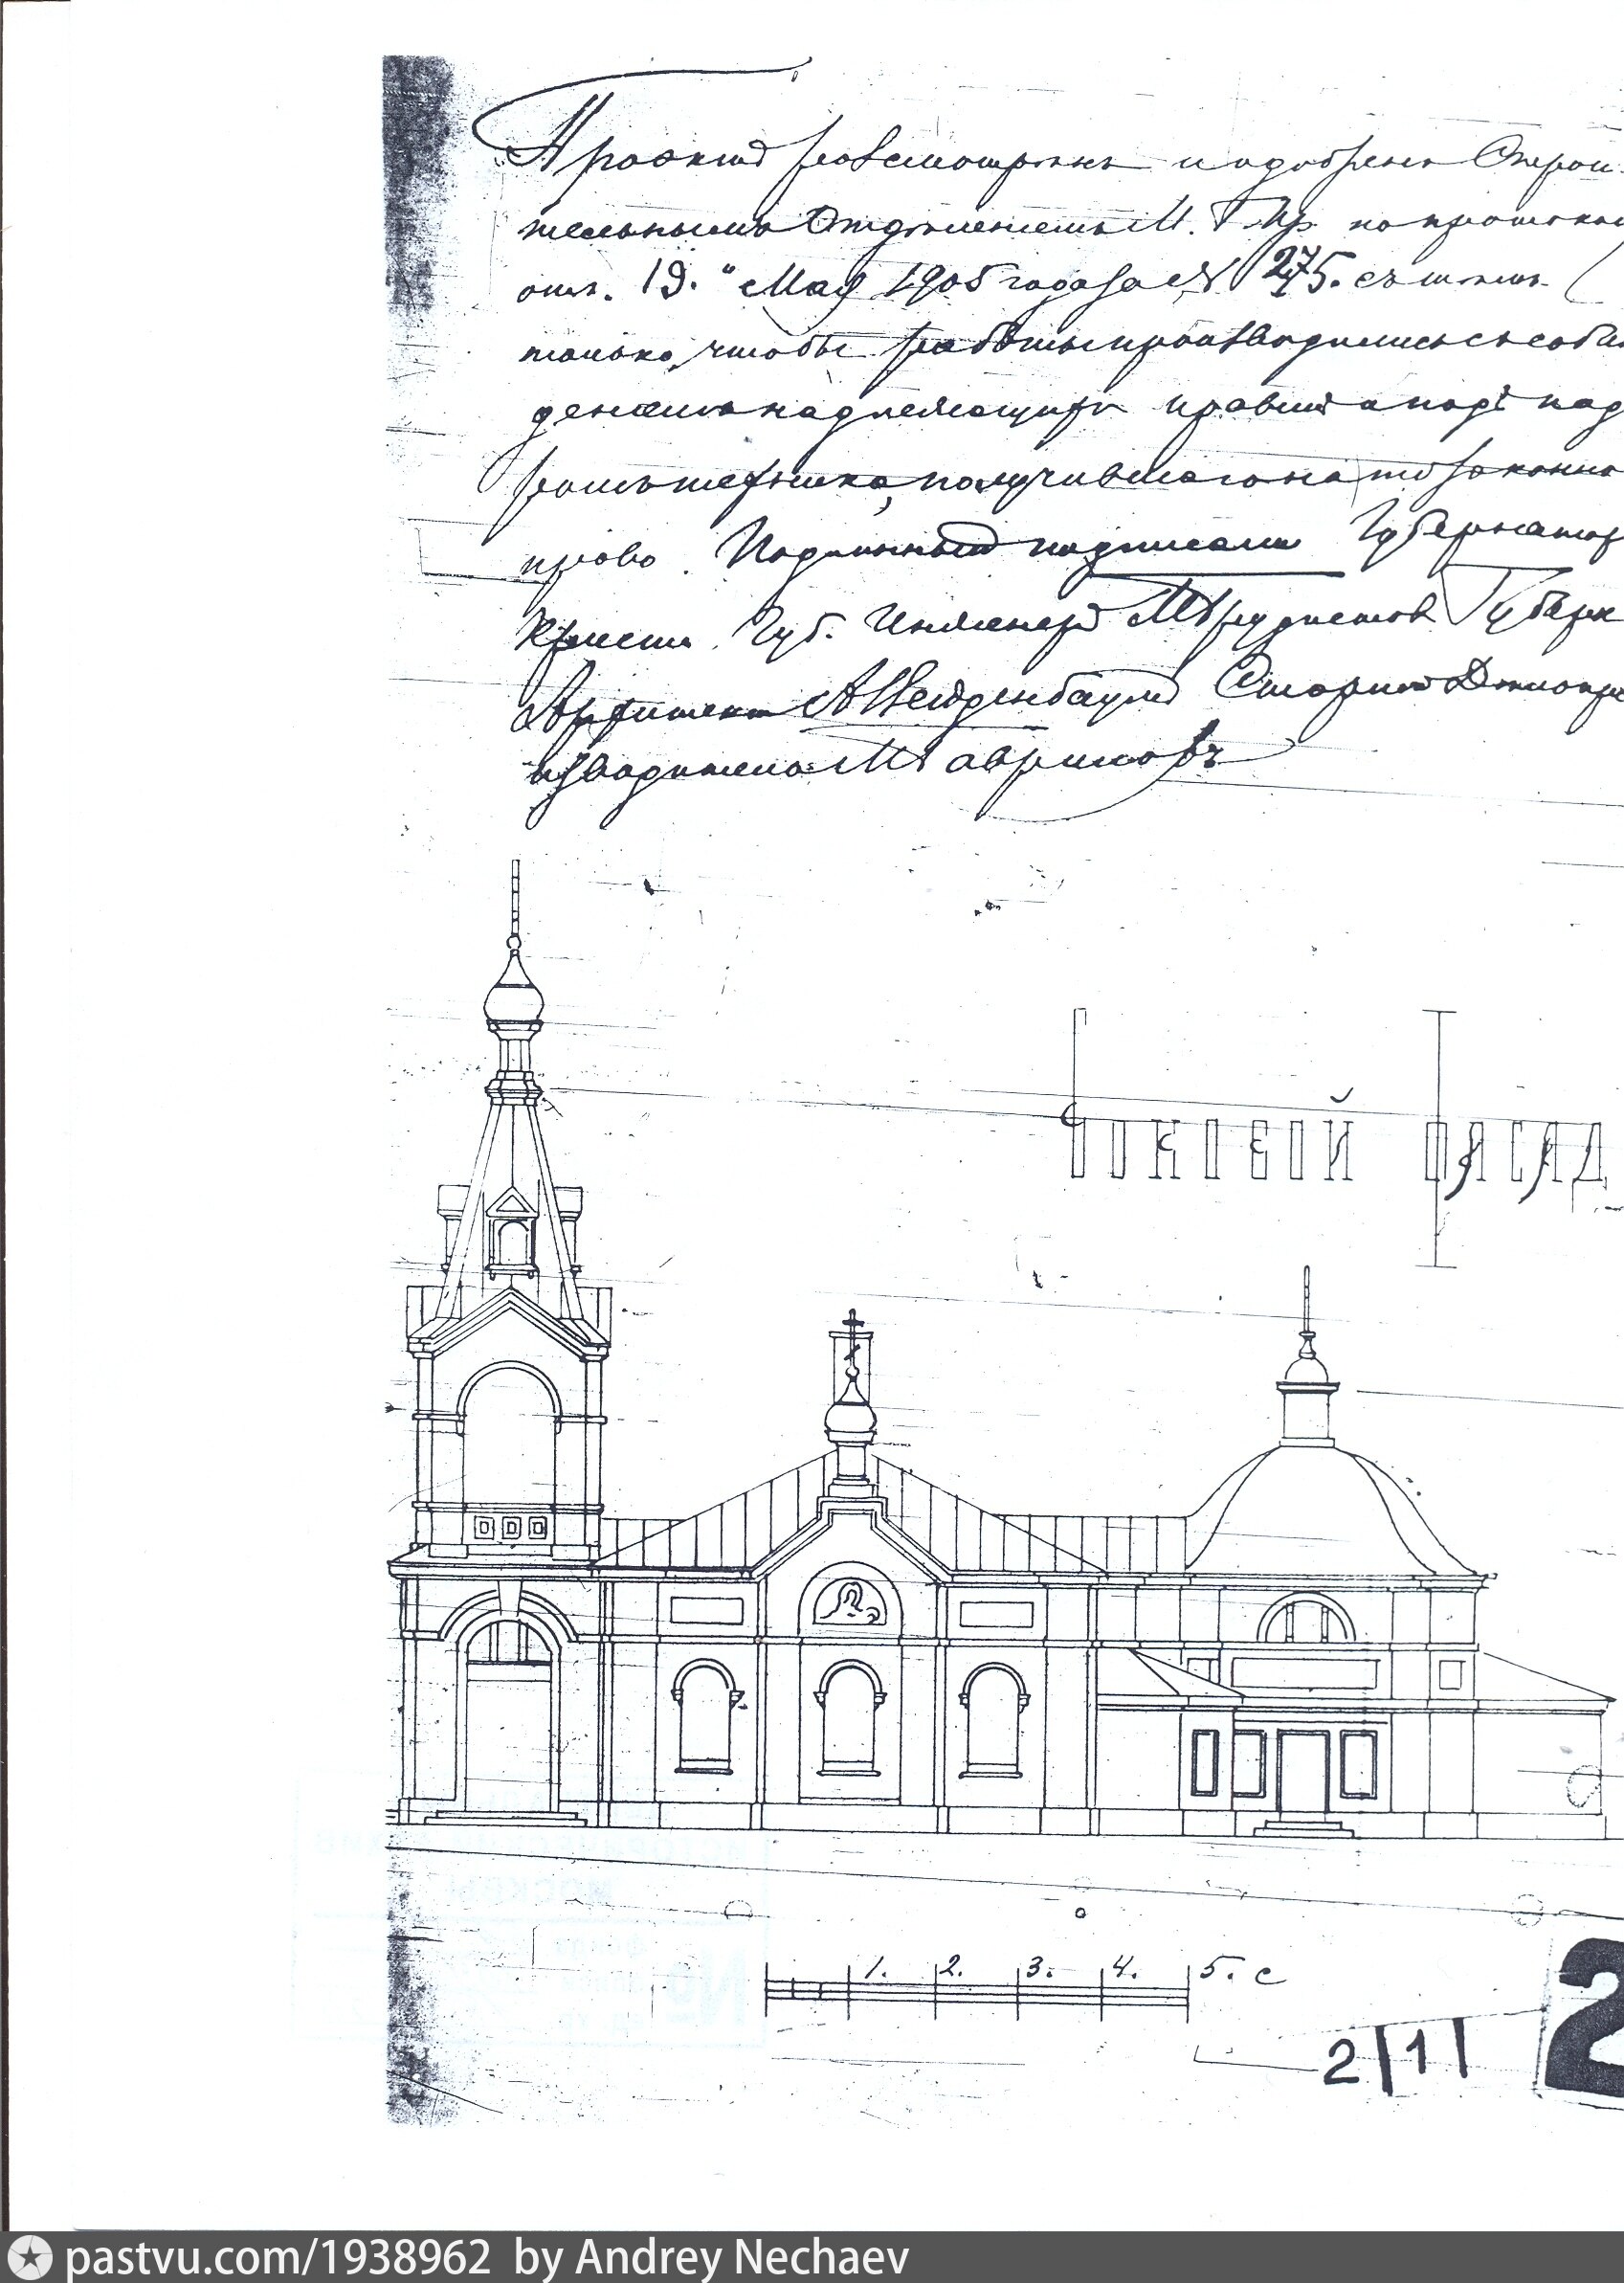 Проектъ разсмотренъ и одобренъ Строи-
тельнымъ Отдѣленіемъ М. Г. Пр. по протокол
отъ 19." Мая 1905 года за № 275. съ тѣмъ
только, чтобы работы производились съ соблю
деніемъ надлежащихъ правилъ и подъ над
зоромъ техника, получившаго на то законно
право. Подлинный подписали Губернатор
Кристи. Губ. Инженеръ Губерн
Архитект А Нейденбаумъ Старшій Дѣлопро
изводитель Гавриловъ
БОКОВОЙ ФАСАД
1. 2. 3. 4. 5. с
2 1
2
pastvu.com/1938962 by Andrey Nechaev